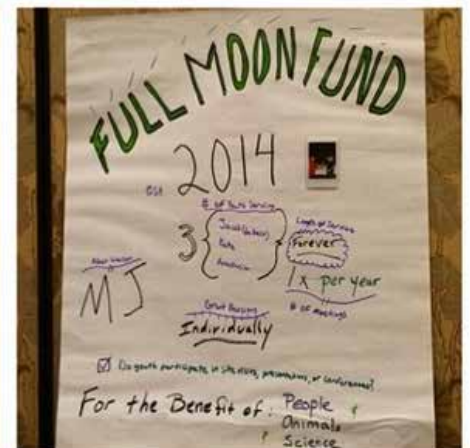 FULL MOON FUND
est 2014
# of Youth Serving
3
Kate
Length of Service
Forever
1x per year
# of meetings
MJ
Grant Decisions
Individually
Do youth participate in site visits, presentations, or conferences?
For the Benefit of: People
Animals
Science